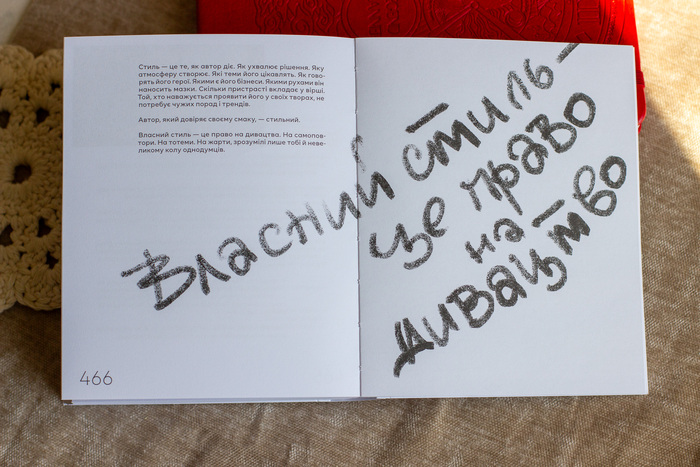 Стиль — це те, як автор діє. Як ухвалює рішення. Яку
атмосферу створює. Які теми його цікавлять. Як гово-
рять його герої. Якими є його бізнеси. Якими рухами він
наносить мазки. Скільки пристрасті вкладає у вірші.
Той, хто наважується проявити його у своїх творах, не
потребує чужих порад і трендів.
Автор, який довіряє своєму смаку, — стильний.
Власний стиль — це право на дивацтва. На самопов-
тори. На тотеми. На жарти, зрозумілі лише тобі й неве-
ликому колу однодумців.
466
Власний стиль —
це право
на
дивацтво